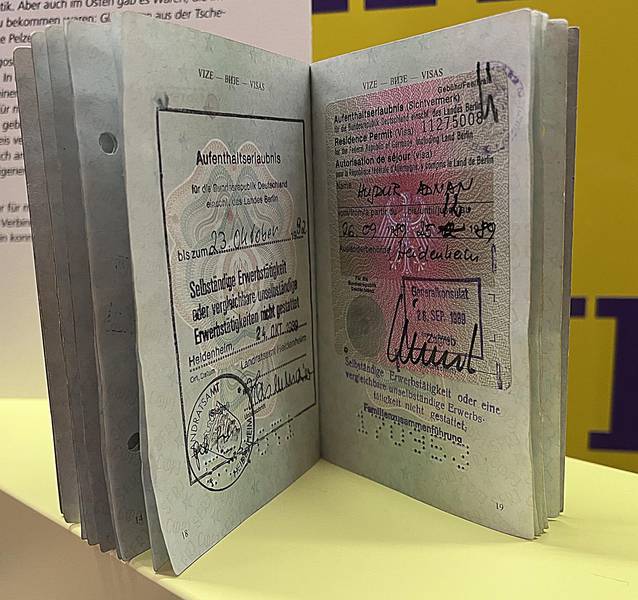 tik. Aber auch im Osten gab es Waren, die
u bekommen waren:
aus der Tsche-
e Pelze
VIZE — ВИЗЕ — VISAS
Aufenthaltserlaubnis
für die Bundesrepublik Deutschland
einschl. des Landes Berlin
bis zum 23. Oktober 1992
Selbständige Erwerbstätigkeit
oder vergleichbare unselbständige
Erwerbstätigkeiten nicht gestattet.
Heidenheim, 24. OKT. 1989
Ort, Datum
Landratsamt Heidenheim
LANDRATSAMT
HEIDENHEIM
18
VIZE — ВИЗЕ — VISAS
Gebührenfrei
Aufenthaltserlaubnis (Sichtvermerk)
für die Bundesrepublik Deutschland einschl. des Landes Berlin
Residence Permit (Visa) 11275008
for the Federal Republic of Germany, including Land Berlin
Autorisation de séjour (visa)
pour la République fédérale d'Allemagne, y compris le Land Berlin
ADNAN
26 09 89 25 89
Ausländerbehörde Heidenheim
Für die
Bundesrepublik
Deutschland
Generalkonsulat
26. SEP. 1989
Zagreb
Selbständige Erwerbstätigkeit oder eine
vergleichbare unselbständige Erwerbs-
tätigkeit nicht gestattet;
Familienzusammenführung
19
14